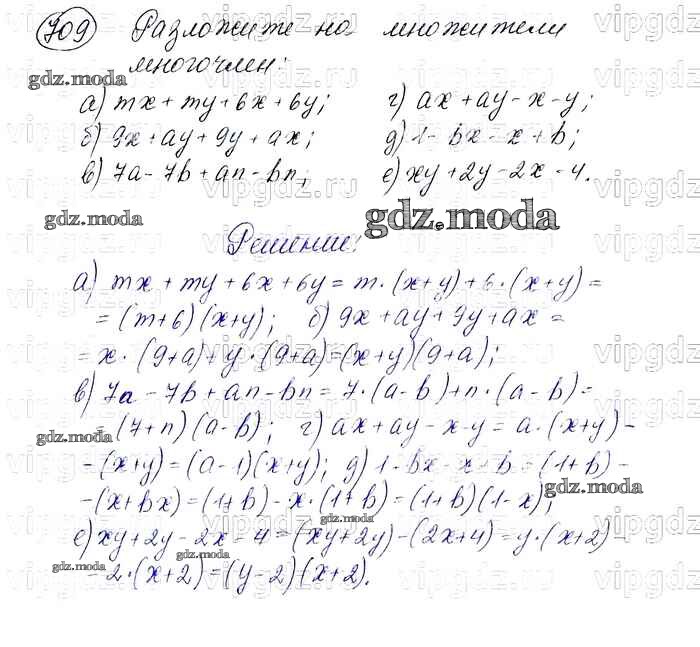 709 Разложите на множители
многочлен:
gdz.moda
а) mx + my + 6x + 6y; г) ax + ay - x - y;
б) 9x + ay + 9y + ax; д) 1 - bx - x + b;
в) 7a - 7b + an - bn; е) xy + 2y - 2x - 4.
gdz.moda gdz.moda
Решение:
а) mx + my + 6x + 6y = m · (x+y) + 6 · (x+y) =
= (m+6)(x+y); б) 9x + ay + 9y + ax =
= x · (9+a) + y · (9+a) = (x+y)(9+a);
в) 7a - 7b + an - bn = 7 · (a-b) + n · (a-b) =
= (7+n)(a-b); г) ax + ay - x - y = a · (x+y) -
gdz.moda
- (x+y) = (a-1)(x+y); д) 1 - bx - x + b = (1+b) -
gdz.moda
- (x+bx) = (1+b) - x · (1+b) = (1+b)(1-x);
gdz.moda
е) xy + 2y - 2x - 4 = (xy+2y) - (2x+4) = y · (x+2) -
gdz.moda
- 2 · (x+2) = (y-2)(x+2).